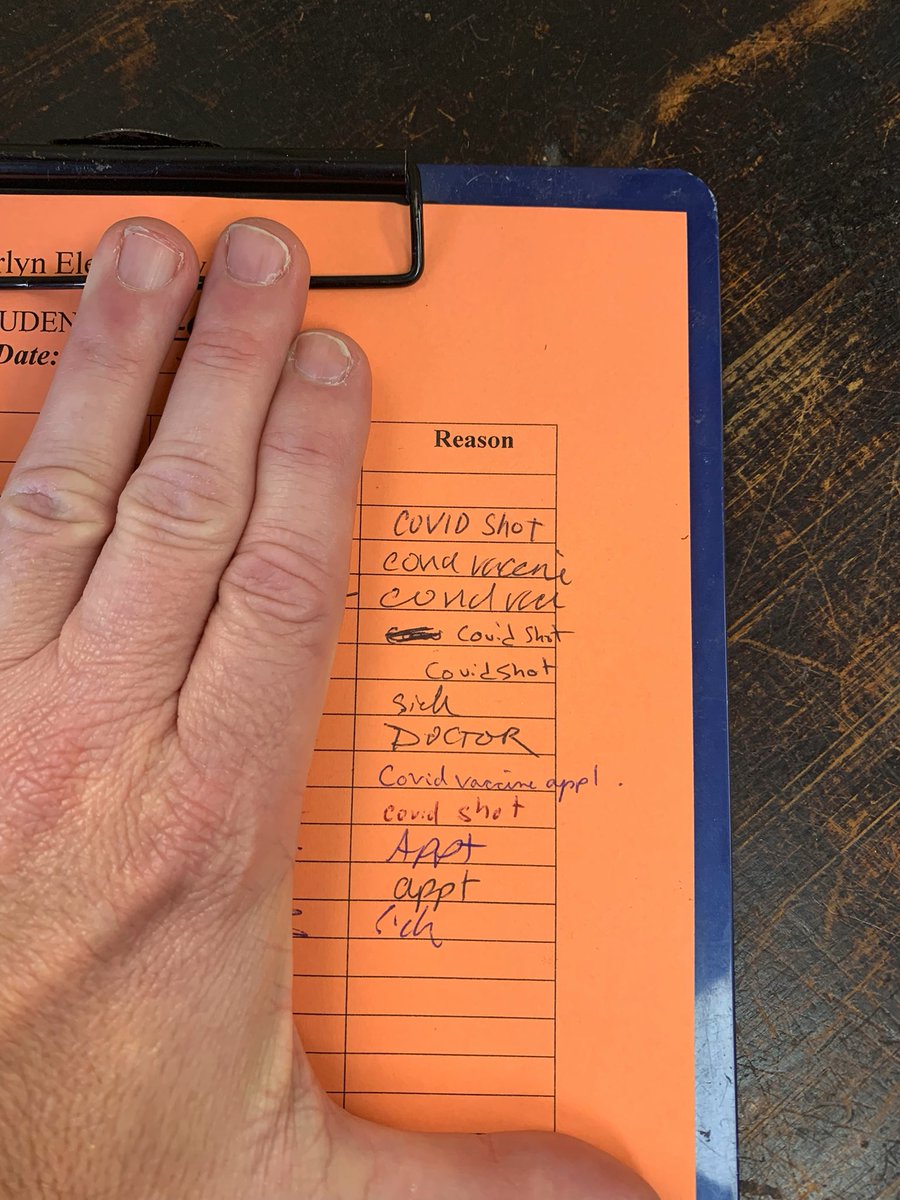 rlyn Ele
UDEN
Date:
Reason
COVID Shot
covid vaccine
covid vacc
Covid Shot
Covid shot
sick
DOCTOR
Covid vaccine appt.
covid shot
Appt
appt
sick